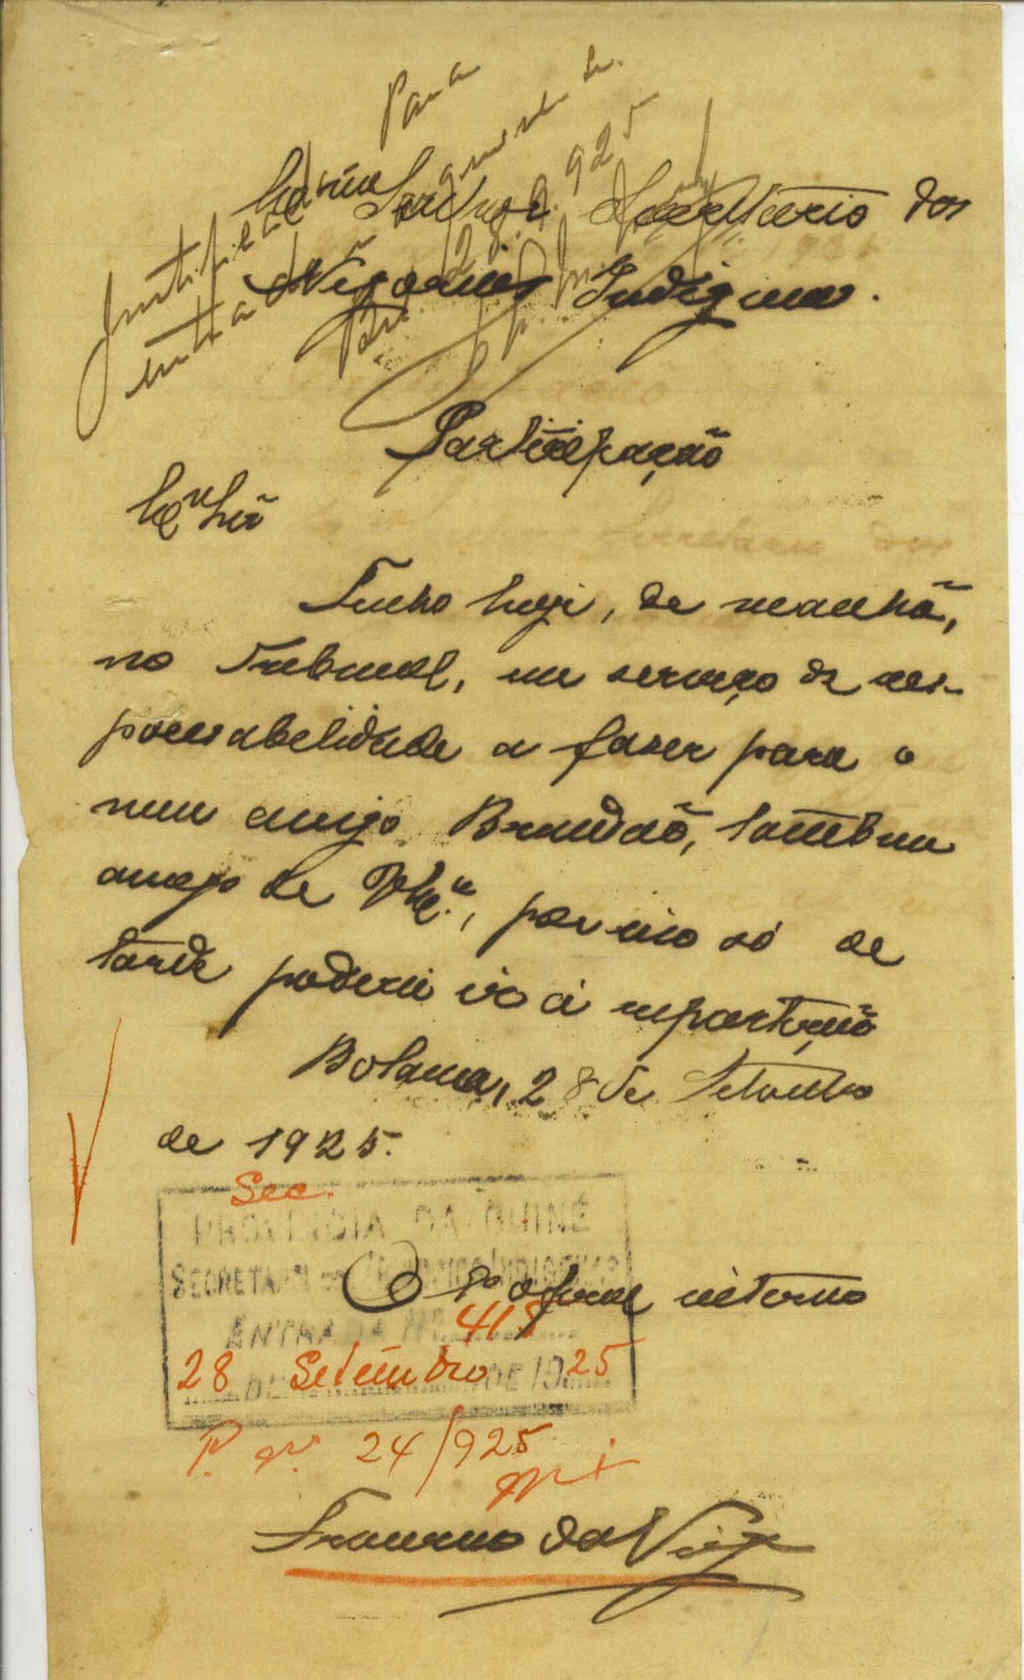 Para
Senhor Secretario dos
Negocios Indigenas.
Participação
Exmo Snr
Tenho hoje, de manhã,
no Tribunal, um serviço de res-
ponsabelidade a faser para o
meu amigo Brandão, tambem
amigo de V. Exa., por isso só de
tarde poderei ir á repartição
Bolama, 28 de Setembro
de 1925.
Sec.
PROVINCIA DA GUINÉ
SECRETARIA DOS NEGOCIOS INDIGENAS
O 1o oficial interino
ENTRADA Nº 418
28 DE Setembro DE 1925
P. nº 24/925
Francisco da Veiga